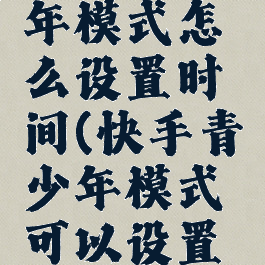 年模式怎
么设置时
间(快手青
少年模式
可以设置